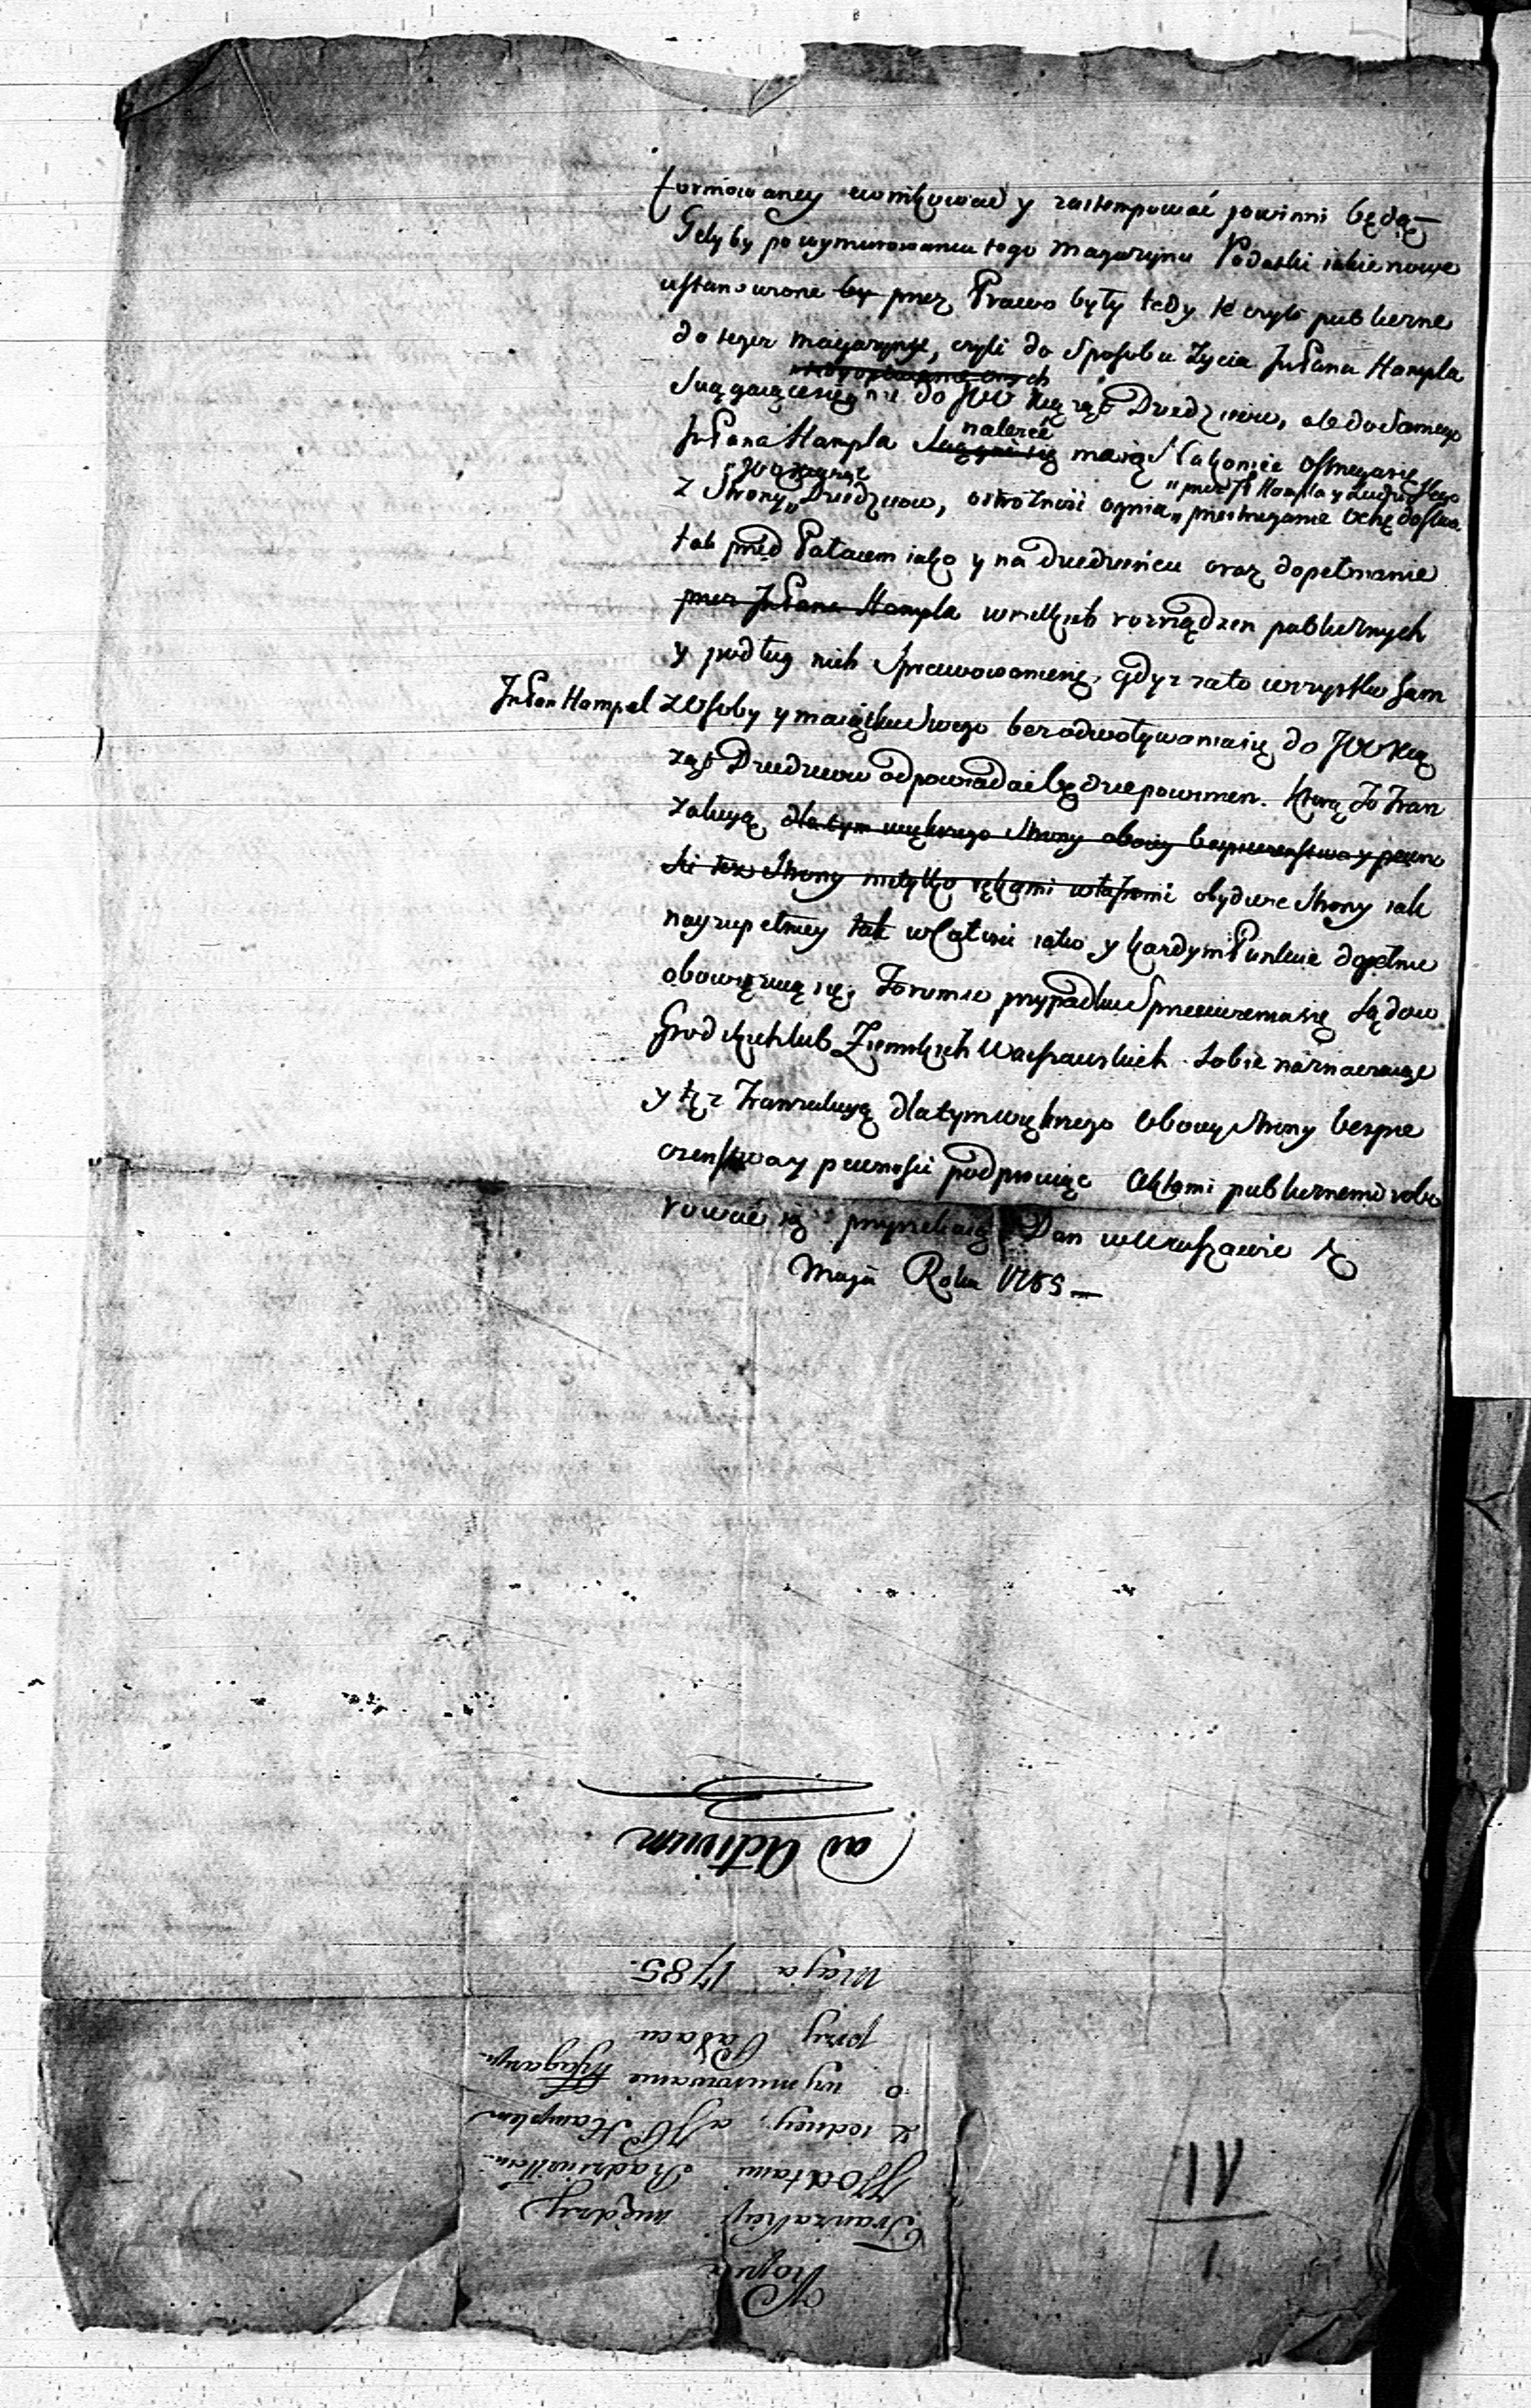 formowaney ewinkować y zastempować powinni będą —
Gdyby po wymurowaniu tego Magazynu Podatki iakie nowe
ustanowione by przez Prawo były tedy te czyli publiczne
do tegoż magazynu, czyli do Sposobu Życia JnPana Hampla
Sciągaiące się nie do JWW Xiążąt Dziedziców, ale do samego
JnPana Hampla Sciągaić się należeć maią Nakoniec ostrzegaią się
z Strony JWW Xiążąt Dziedziców, ostrożność ognia, przestrzeganie Ochędostwa
przez JP Hampla y Ludzi Jego
tak przed Pałacem iako y na dziedzińcu oraz dopełnianie
przez JnPana Hampla wszelkich rozrządzeń publicznych
y podług nich Sprawowanie się, gdyż za to wszystko sam
JnPan Hampel z osoby y maiątku Swego bez odwoływania się do JWW Xią
żąt Dziedziców odpowiadać będzie powinien. Którą to Tran
zakcyą dla tym większego Strony obojey bespieczenstwa y pewno
ści też Strony nietylko rękami własnemi obydwie Strony iak
nayzupełniey tak w Całości iako y każdym Punkcie dopełnić
obowięzuią się, Forum w przypadku Sprzeciwienia się Sądów
Grodzkich lub Ziemskich Warszawskich Sobie naznaczaiąc
y tęż Tranzakcyą dla tym większego Obojey Strony bespie
czenstwa y pewności podpisuiąc Aktami publicznemi robo
rować ią przyrzekaią Dan w Warszawie
Maja Roku 1785 —
ad Actum
Kopia
Tranzakcyi między
JJOatami Radziwiłłem
z iedney, a JP Hamplem
o wymurowanie Magazyn
przy Pałacu
Maja 1785.
IV
1